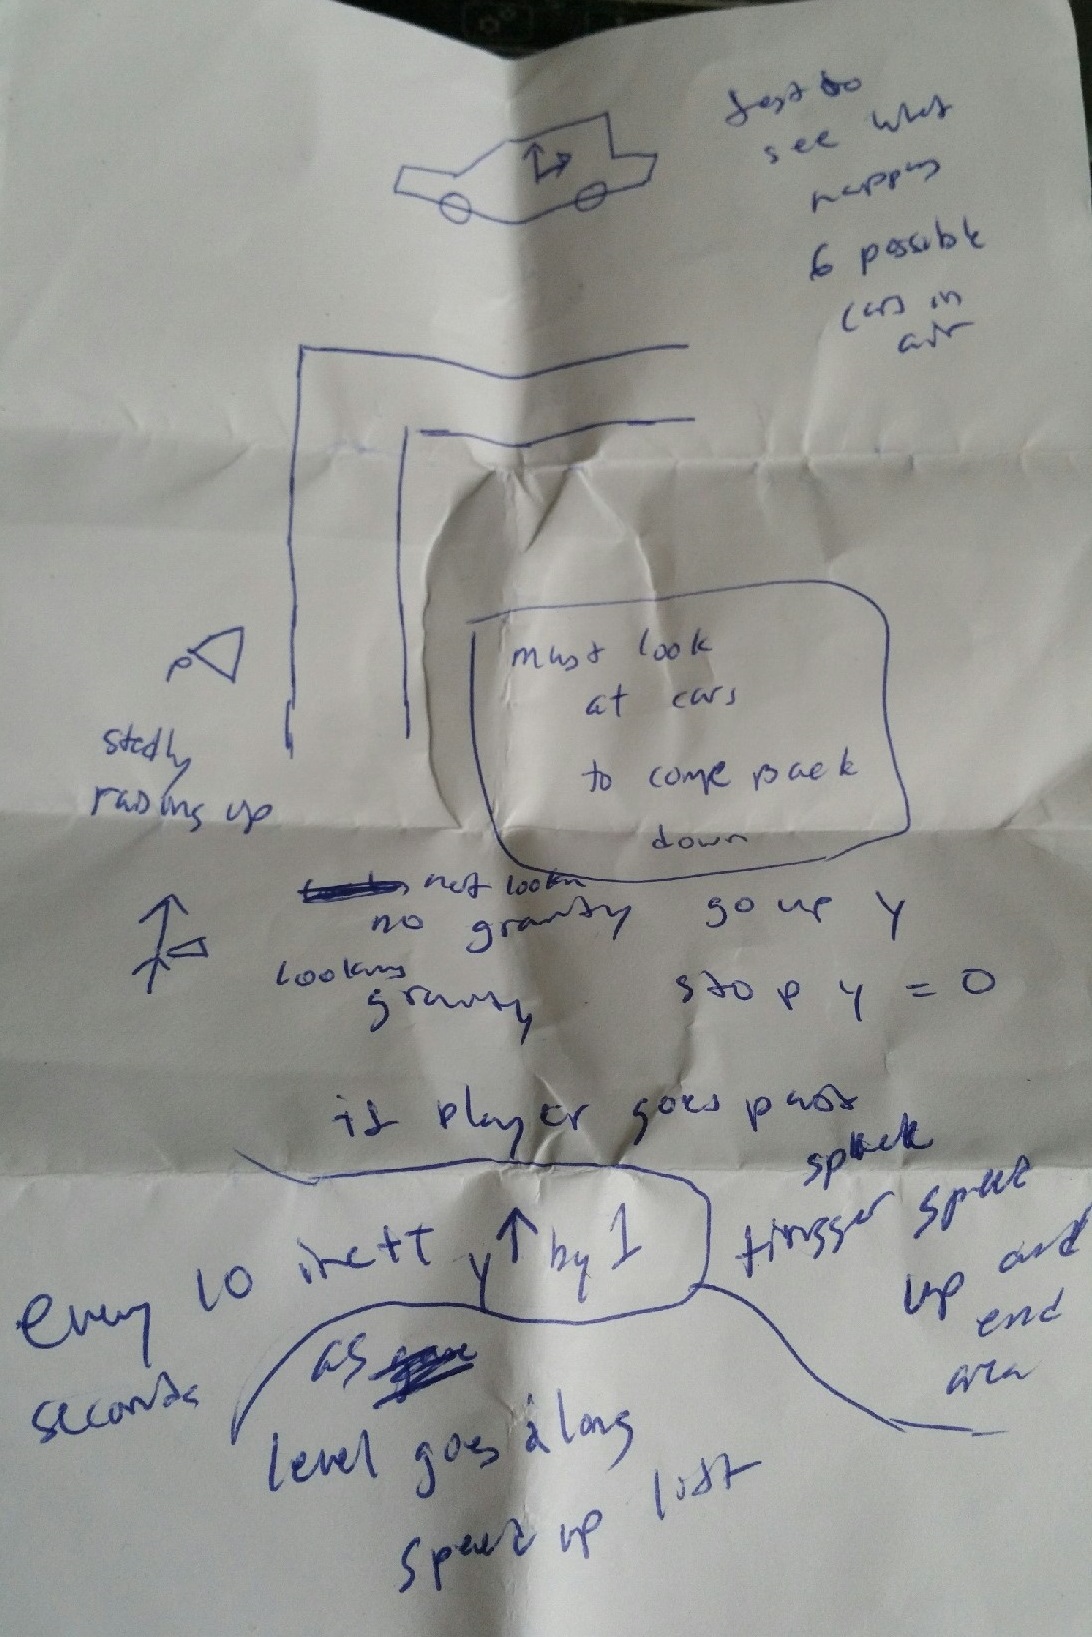 test to
see what
happens
6 possible
cars in
air
must look
at cars
to come back
down
stedly
raising up
not lookn
no gravity go up y
looking
gravity stop y = 0
if player goes past
trigger speed
up and
end
area
every 10
seconds
y ↑ by 1
as
level goes along
speed up lift